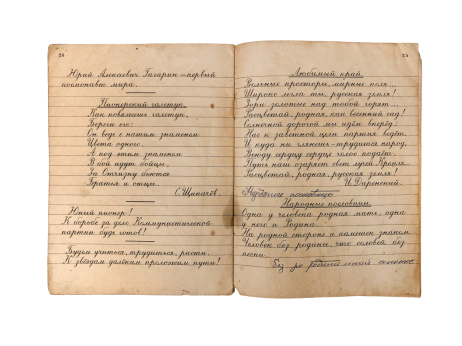 24
Юрий Алексеевич Гагарин – первый
космонавт мира.
Пионерский галстук.
Как повяжешь галстук,
Береги его:
Он ведь с нашим знаменем
Цвета одного.
А под этим знаменем
В бой идут бойцы,
За Отчизну бьются
Братья и отцы.
С. Щипачёв.
Юный пионер!
К борьбе за дело Коммунистической
партии будь готов!
Будем учиться, трудиться, расти.
К звёздам далёким проложим пути!
Любимый край.
Вольные просторы, мирные поля...
Широко легла ты, русская земля!
Зори золотые над тобой горят...
Расцветай, родная, как весенний сад!
Солнечной дорогой мы идём вперёд.
Нас к заветной цели партия ведёт.
И куда ни глянешь – трудится народ,
Всюду сердцу сердце голос подаёт.
Путь наш озаряет свет лучей Кремля...
Расцветай, родная, русская земля!
Народные пословицы.
Одна у человека родная мать, одна
у него и Родина.
На родной стороне и камешек знаком.
Человек без родины, что соловей без
песни.
Без